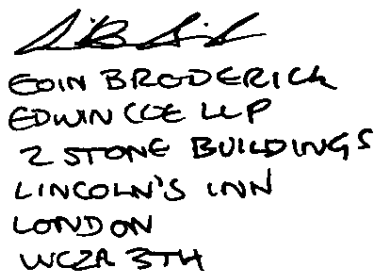 EOIN BRODERICK
EDWIN COE LLP
2 STONE BUILDINGS
LINCOLN'S INN
LONDON
WC2A 3TH